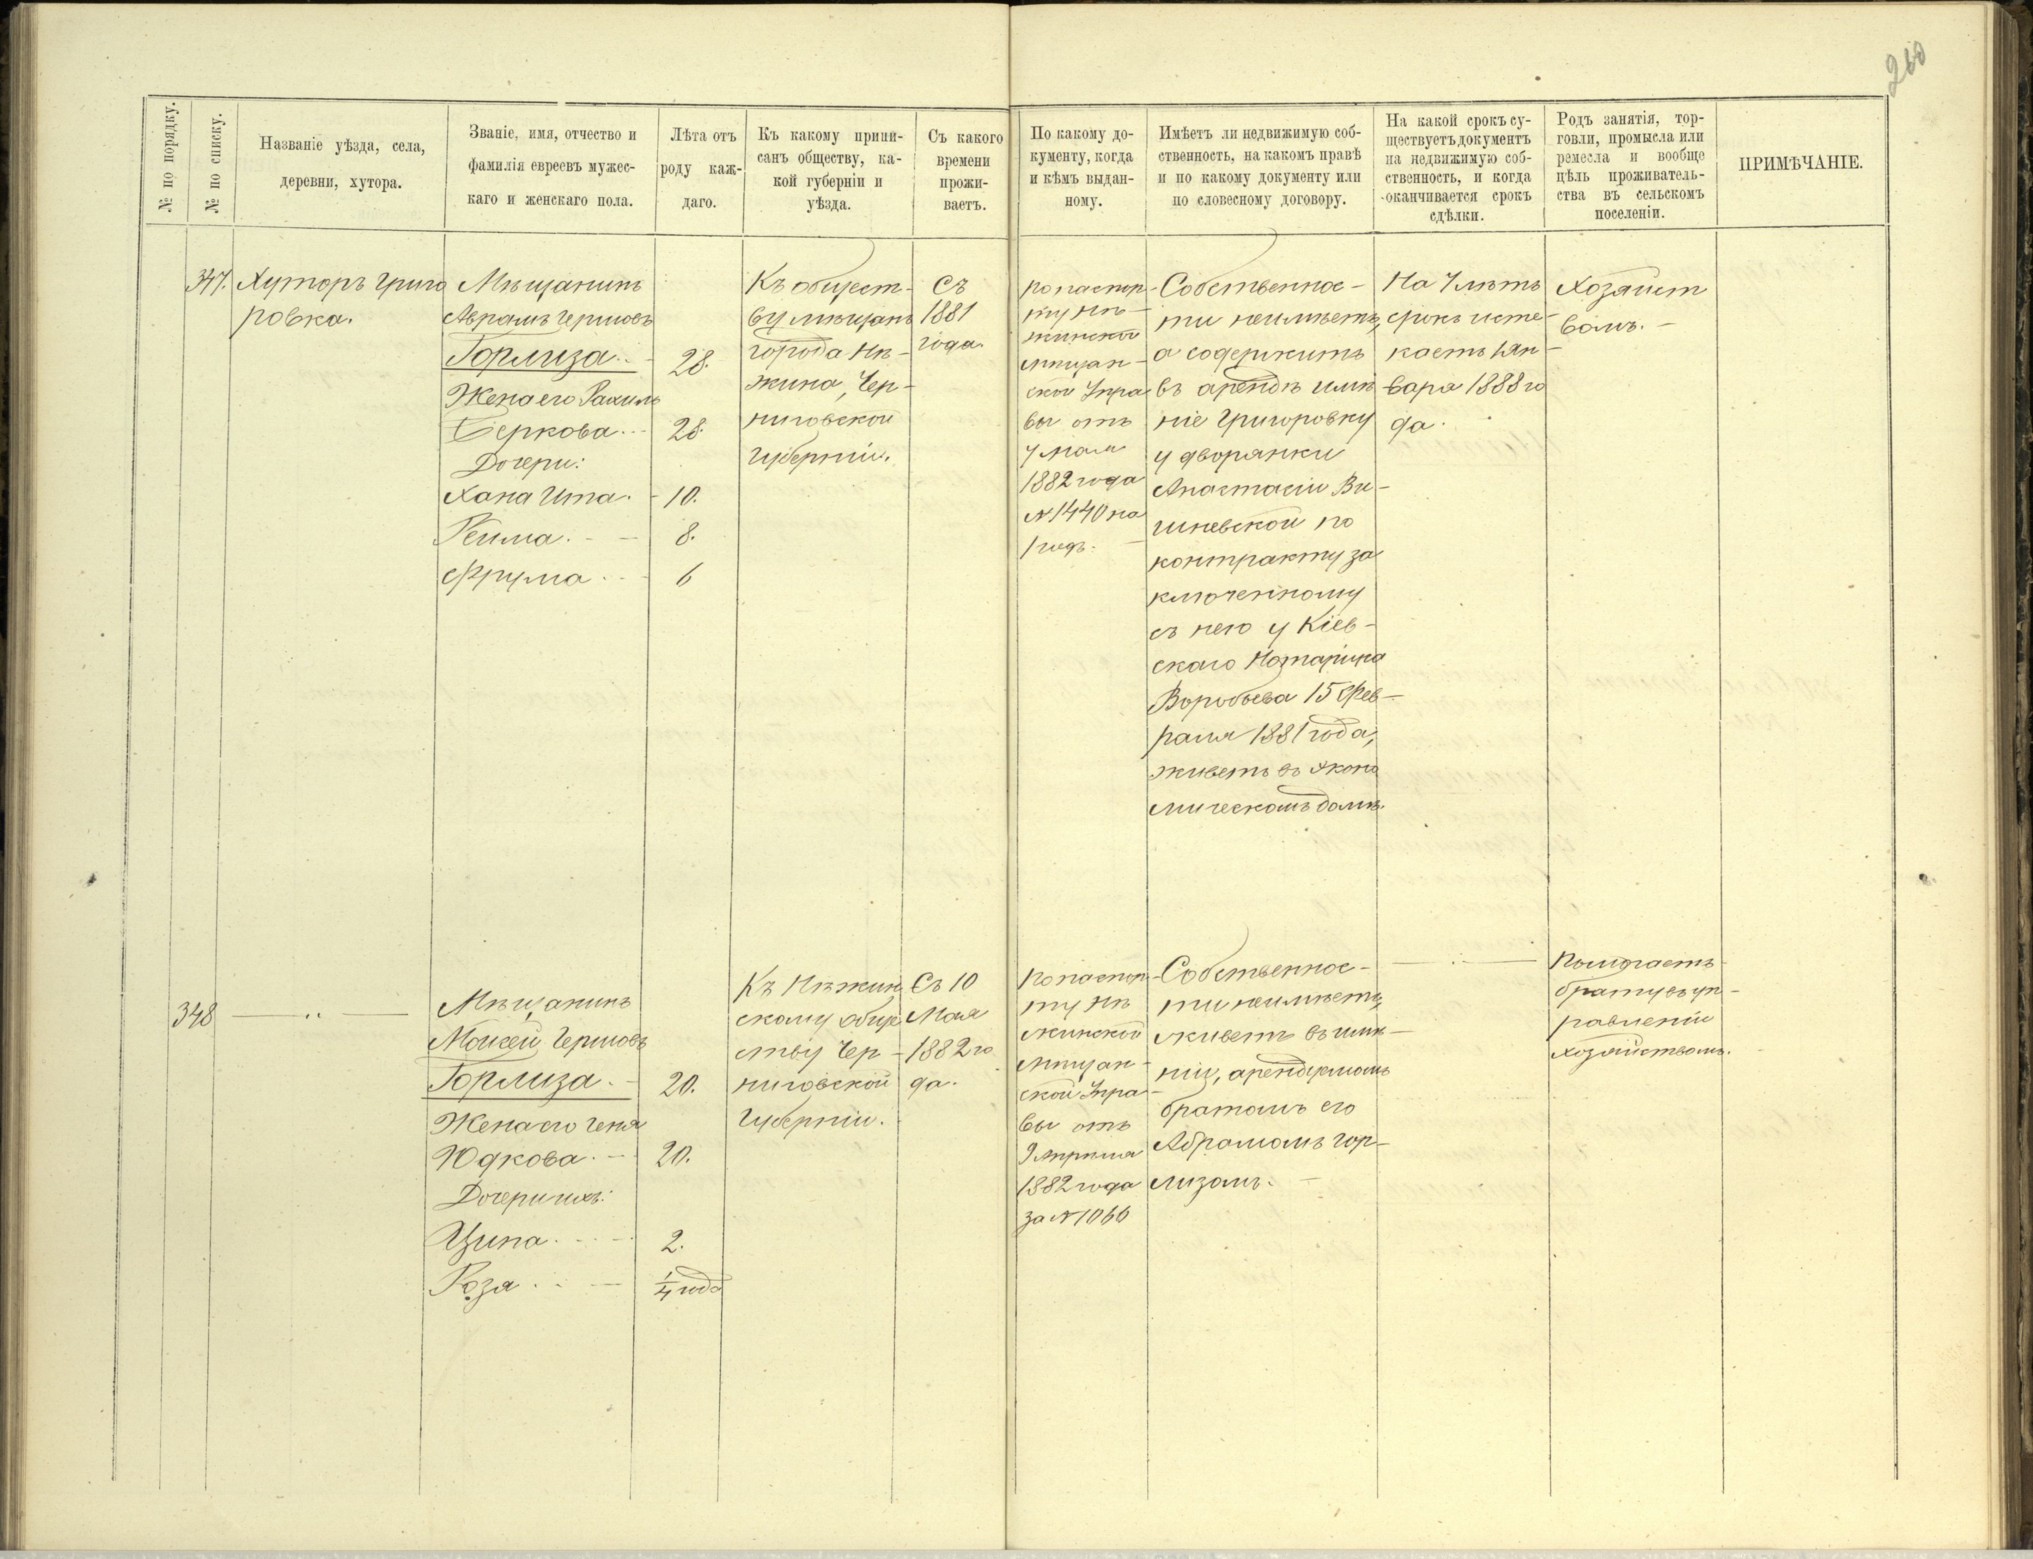 260
№ по порядку.
№ по списку.
Названіе уѣзда, села,
деревни, хутора.
Званіе, имя, отчество и
фамилія евреевъ мужес-
каго и женскаго пола.
Лѣта отъ
роду каж-
даго.
Къ какому припи-
санъ обществу, ка-
кой губерніи и
уѣзда.
Съ какого
времени
прожи-
ваетъ.
По какому до-
кументу, когда
и кѣмъ выдан-
ному.
Имѣетъ ли недвижимую соб-
ственность, на какомъ правѣ
и по какому документу или
по словесному договору.
На какой срокъ су-
ществуетъ документъ
на недвижимую соб-
ственность, и когда
оканчивается срокъ
сдѣлки.
Родъ занятія, тор-
говли, промысла или
ремесла и вообще
цѣль проживатель-
ства въ сельскомъ
поселеніи.
ПРИМѢЧАНІЕ.
347.
Хуторъ Григо
ровка.
Мѣщанинъ
Аврамъ Гершовъ
Горлиза. -
Жена его Рахиль
Беркова. -
Дочери:
Хана Ита. -
Рейма. - -
Фрума. - -
28.
28.
10.
8.
6
Къ общест-
ву мѣщанъ
города Нѣ-
жина, Чер-
ниговской
Губерніи.
Съ
1881
года.
По паспор-
ту Нѣ-
жинской
мѣщан-
ской Упра
вы отъ
7 мая
1882 года
№ 1440 на
1 годъ. -
Собственнос-
ти неимѣетъ,
а содержитъ
въ арендѣ имѣ
ніе Григоровку
у дворянки
Анастасіи Ви-
шневской по
контракту за
ключенному
съ нею у Кіев-
скаго Нотаріуса
Воробьева 15 Фев-
раля 1881 года,
живетъ въ эконо
мическомъ домѣ.
На 7 лѣтъ
срокъ исте-
каетъ Ян-
варя 1888 го
да.
Хозяйст
вомъ. -
348
- " -
Мѣщанинъ
Мойсей Гершовъ
Горлиза. -
Жена его Геня
Юдкова. -
Дочери ихъ:
Цыпа. - -
Роза. - -
20.
20.
2.
1/4 года
Къ Нѣжин
скому обще
ству Чер-
ниговской
Губерніи.
Съ 10
Мая
1882 го
да.
По паспор-
ту Нѣ
жинской
мѣщан-
ской Упра-
вы отъ
9 апрѣля
1882 года
за № 1066
Собственнос-
ти неимѣетъ,
живетъ въ имѣ-
ніи, арендуемомъ
братомъ его
Абрамомъ Гор-
лизомъ. -
- " -
Помогаетъ
брату въ уп-
равленіи
хозяйствомъ.